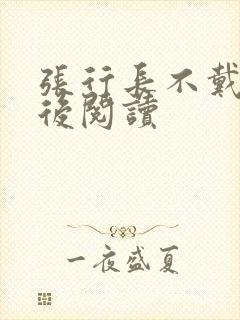 張行長不戴
後閱讀
一夜盛夏